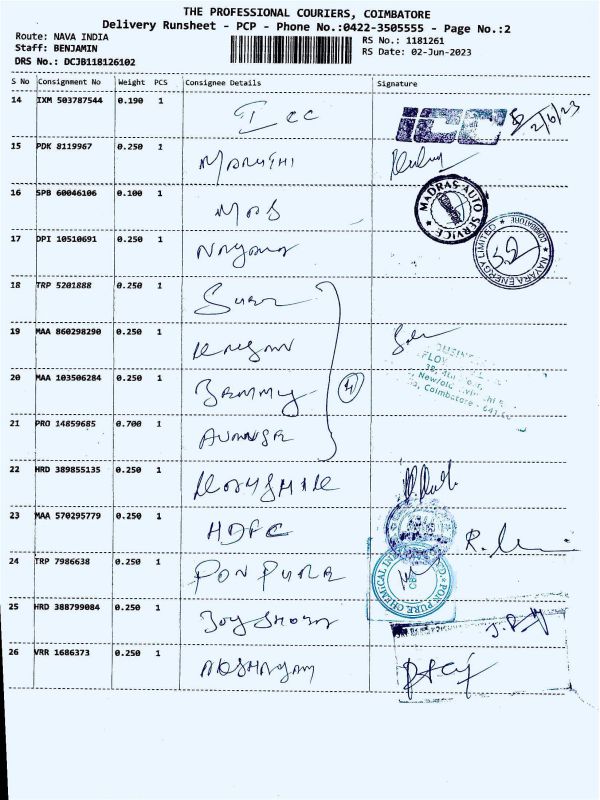 THE PROFESSIONAL COURIERS, COIMBATORE
Delivery Runsheet - PCP - Phone No.:0422-3505555 - Page No.:2
Route: NAVA INDIA
RS No.: 1181261
Staff: BENJAMIN
RS Date: 02-Jun-2023
DRS No.: DCJB118126102
S No Consignment No Weight PCS Consignee Details Signature
14 IXM 503787544 0.190 1 ICC ICC 2/6/23
15 PDK 8119967 0.250 1 MARUTHI
16 SPB 60046106 0.100 1 MAS MADRAS AUTO SERVICE
17 DPI 10510691 0.250 1 NAYARA NAYARA ENERGY LIMITED COIMBATORE
18 TRP 5201888 0.250 1
19 MAA 860298290 0.250 1 KALYAN
20 MAA 103506284 0.250 1 4
21 PRO 14859685 0.700 1
Coimbatore - 641
22 HRD 389855135 0.250 1
23 MAA 570295779 0.250 1 HDFC
24 TRP 7986638 0.250 1 PON PURE PON PURE CHEMICAL
25 HRD 388799084 0.250 1
26 VRR 1686373 0.250 1